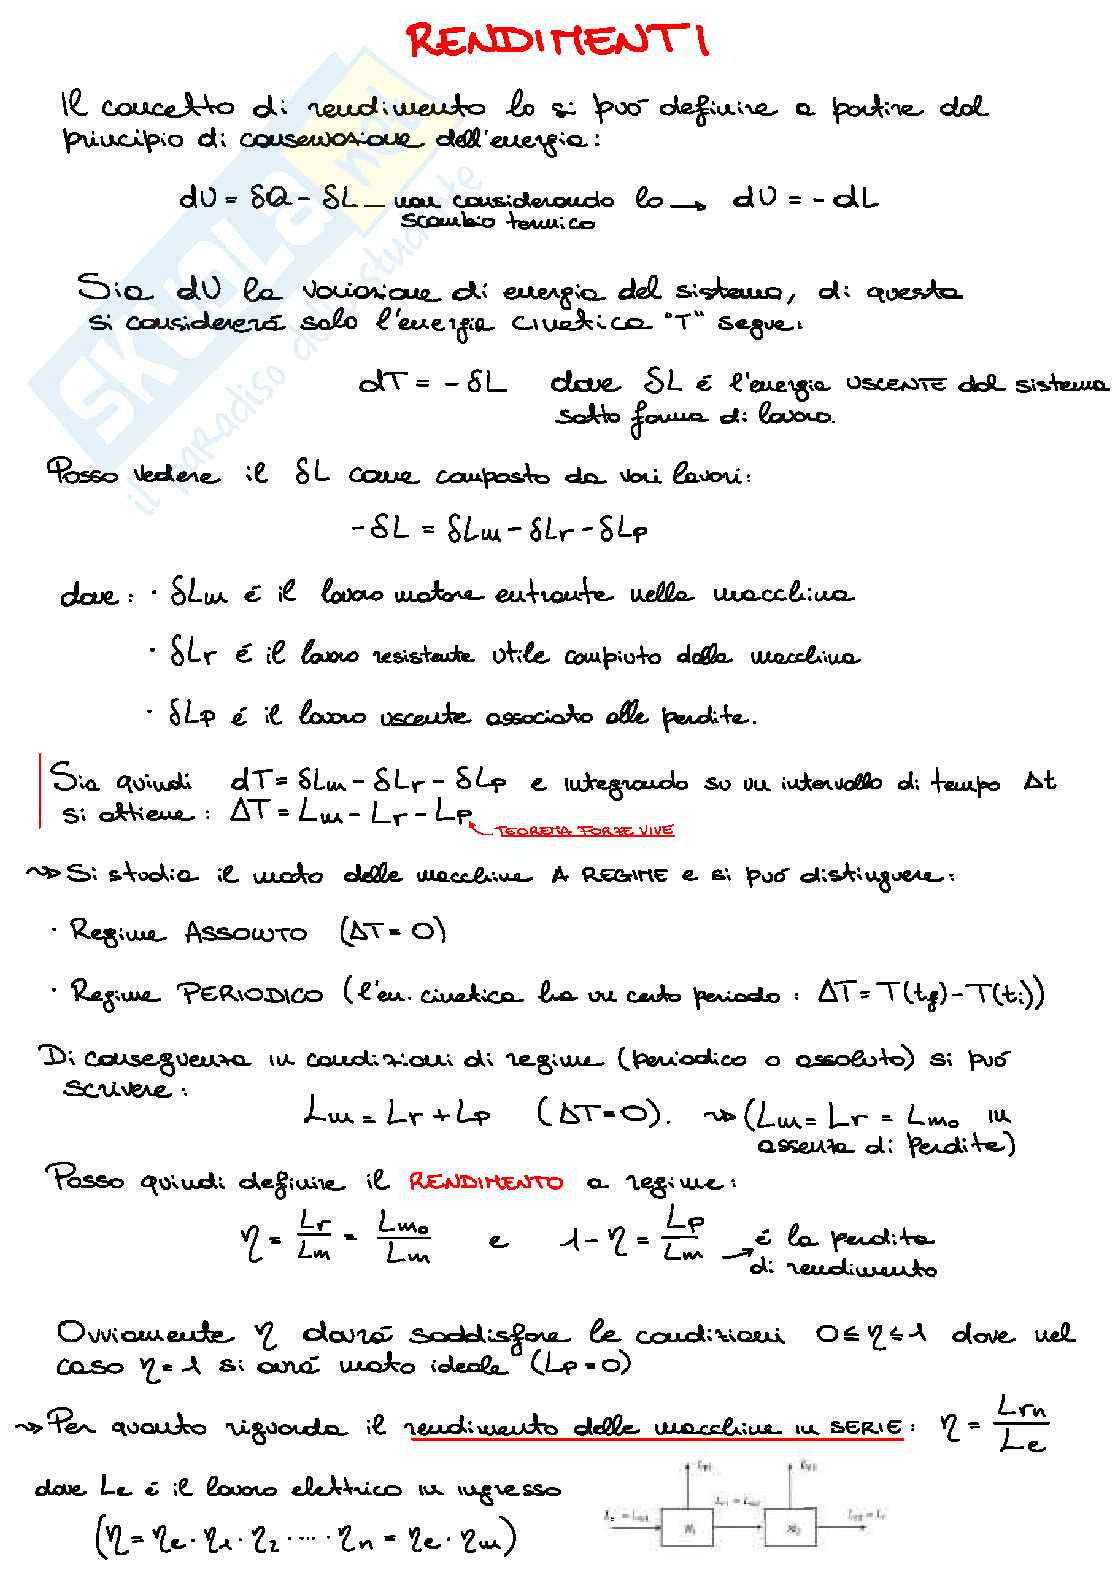 RENDIMENTI
Il concetto di rendimento lo si può definire a partire dal
principio di conservazione dell'energia:
dU = δQ - δL — non considerando lo → dU = - dL
scambio termico
Sia dU la variazione di energia del sistema, di questa
si considererà solo l'energia cinetica "T" segue:
dT = - δL dove δL é l'energia USCENTE dal sistema
sotto forma di lavoro.
Posso vedere il δL come composto da vari lavori:
- δL = δLm - δLr - δLp
dove: · δLm é il lavoro motore entrante nella macchina
· δLr é il lavoro resistente utile compiuto dalla macchina
· δLp é il lavoro uscente associato alle perdite.
Sia quindi dT = δLm - δLr - δLp e integrando su un intervallo di tempo Δt
si ottiene: ΔT = Lm - Lr - Lp
TEOREMA FORZE VIVE
⇝ Si studia il moto delle macchine A REGIME e si può distinguere:
· Regime ASSOLUTO (ΔT = 0)
· Regime PERIODICO (l'en. cinetica ha un certo periodo: ΔT = T(tf) - T(ti))
Di conseguenza in condizioni di regime (periodico o assoluto) si può
scrivere:
Lm = Lr + Lp (ΔT = 0). ⇝ (Lm = Lr = Lmo in
assenza di perdite)
Posso quindi definire il RENDIMENTO a regime:
η = Lr/Lm = Lmo/Lm e 1 - η = Lp/Lm → é la perdita
di rendimento
Ovviamente η dovrá soddisfare le condizioni 0 ≤ η ≤ 1 dove nel
caso η = 1 si avrá moto ideale (Lp = 0)
⇝ Per quanto riguarda il rendimento delle macchine in SERIE: η = Lrn/Le
dove Le é il lavoro elettrico in ingresso
(η = ηe · η1 · η2 ····· ηn = ηe · ηm)
SKUOLA.net
il paradiso dello studente